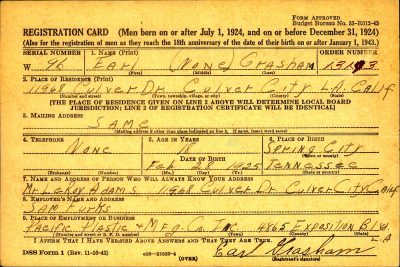 FORM APPROVED
Budget Bureau No. 33-R012-42
REGISTRATION CARD (Men born on or after July 1, 1924, and on or before December 31, 1924)
(Also for the registration of men as they reach the 18th anniversary of the date of their birth on or after January 1, 1943.)
SERIAL NUMBER 1. NAME (Print) ORDER NUMBER
W 96 Earl (None) Grasham
(First) (Middle) (Last)
2. PLACE OF RESIDENCE (Print)
11968 Culver Dr. Culver City L.A. Calif
(Number and street) (Town, township, village, or city) (County) (State)
[THE PLACE OF RESIDENCE GIVEN ON LINE 2 ABOVE WILL DETERMINE LOCAL BOARD
JURISDICTION; LINE 2 OF REGISTRATION CERTIFICATE WILL BE IDENTICAL]
3. MAILING ADDRESS
SAME
(Mailing address if other than place indicated on line 2. If same, insert word same)
4. TELEPHONE 5. AGE IN YEARS 6. PLACE OF BIRTH
None 18 Spring City
DATE OF BIRTH (Town or county)
Feb 28 1925 Tennessee
(Exchange) (Number) (Mo.) (Day) (Yr.) (State or country)
7. NAME AND ADDRESS OF PERSON WHO WILL ALWAYS KNOW YOUR ADDRESS
Mr LeRoy Adams 11968 Culver Dr. Culver City Calif
8. EMPLOYER'S NAME AND ADDRESS
SAM
9. PLACE OF EMPLOYMENT OR BUSINESS
Pacific Plastic & Mfg. Co. Inc. 4865 Exposition Blvd.
L.A
(Number and street or R. F. D. number) (Town) (County) (State)
I AFFIRM THAT I HAVE VERIFIED ABOVE ANSWERS AND THAT THEY ARE TRUE.
DSS Form 1 (Rev. 11-16-42) (OVER) Earl Grasham
(Registrant's signature)